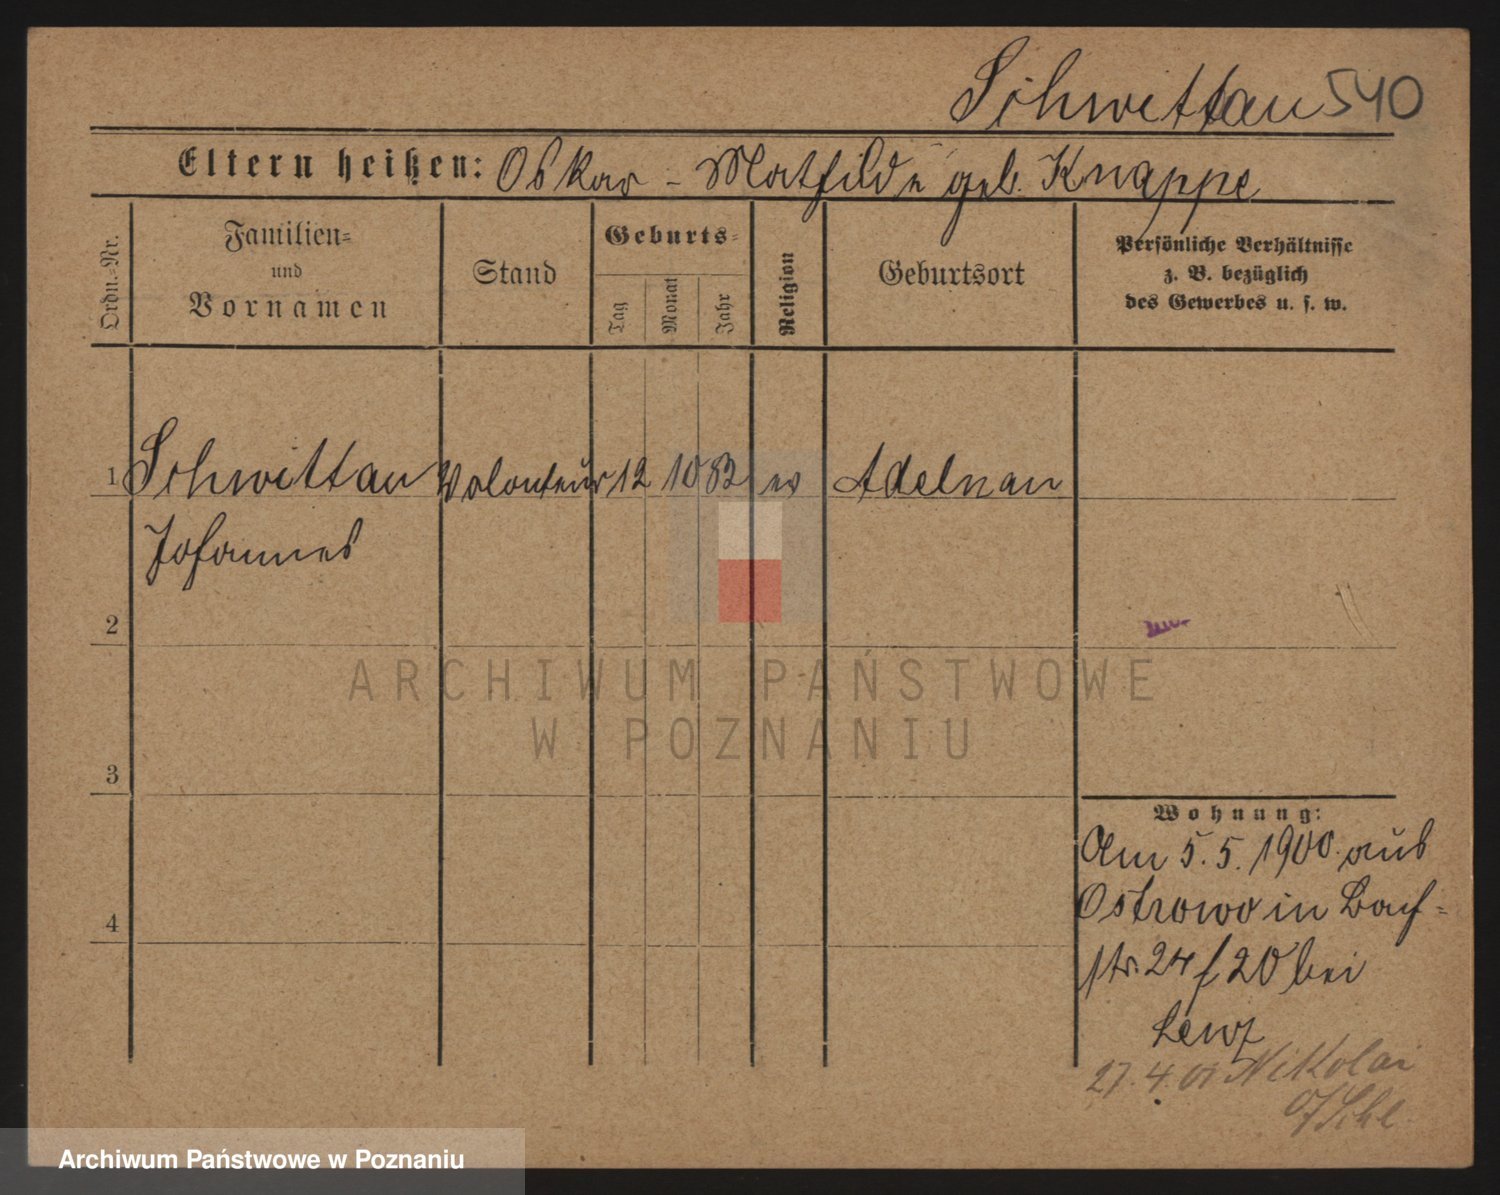 Schwittau 540
Eltern heißen: Oskar - Mathilde geb. Knappe
Ordn.-Nr.
Familien-
und
Vornamen
Stand
Geburts-
Tag
Monat
Jahr
Religion
Geburtsort
Persönliche Verhältnisse
z. B. bezüglich
des Gewerbes u. s. w.
1 Schwittau Volonteur 12 10 82 ev Adelnau
Johannes
2
3
4
ARCHIWUM PAŃSTWOWE
W POZNANIU
Wohnung:
Am 5. 5. 1900 aus
Ostrowo in
str. 24 20 bei
27. 4. 01 Nikolai
Archiwum Państwowe w Poznaniu